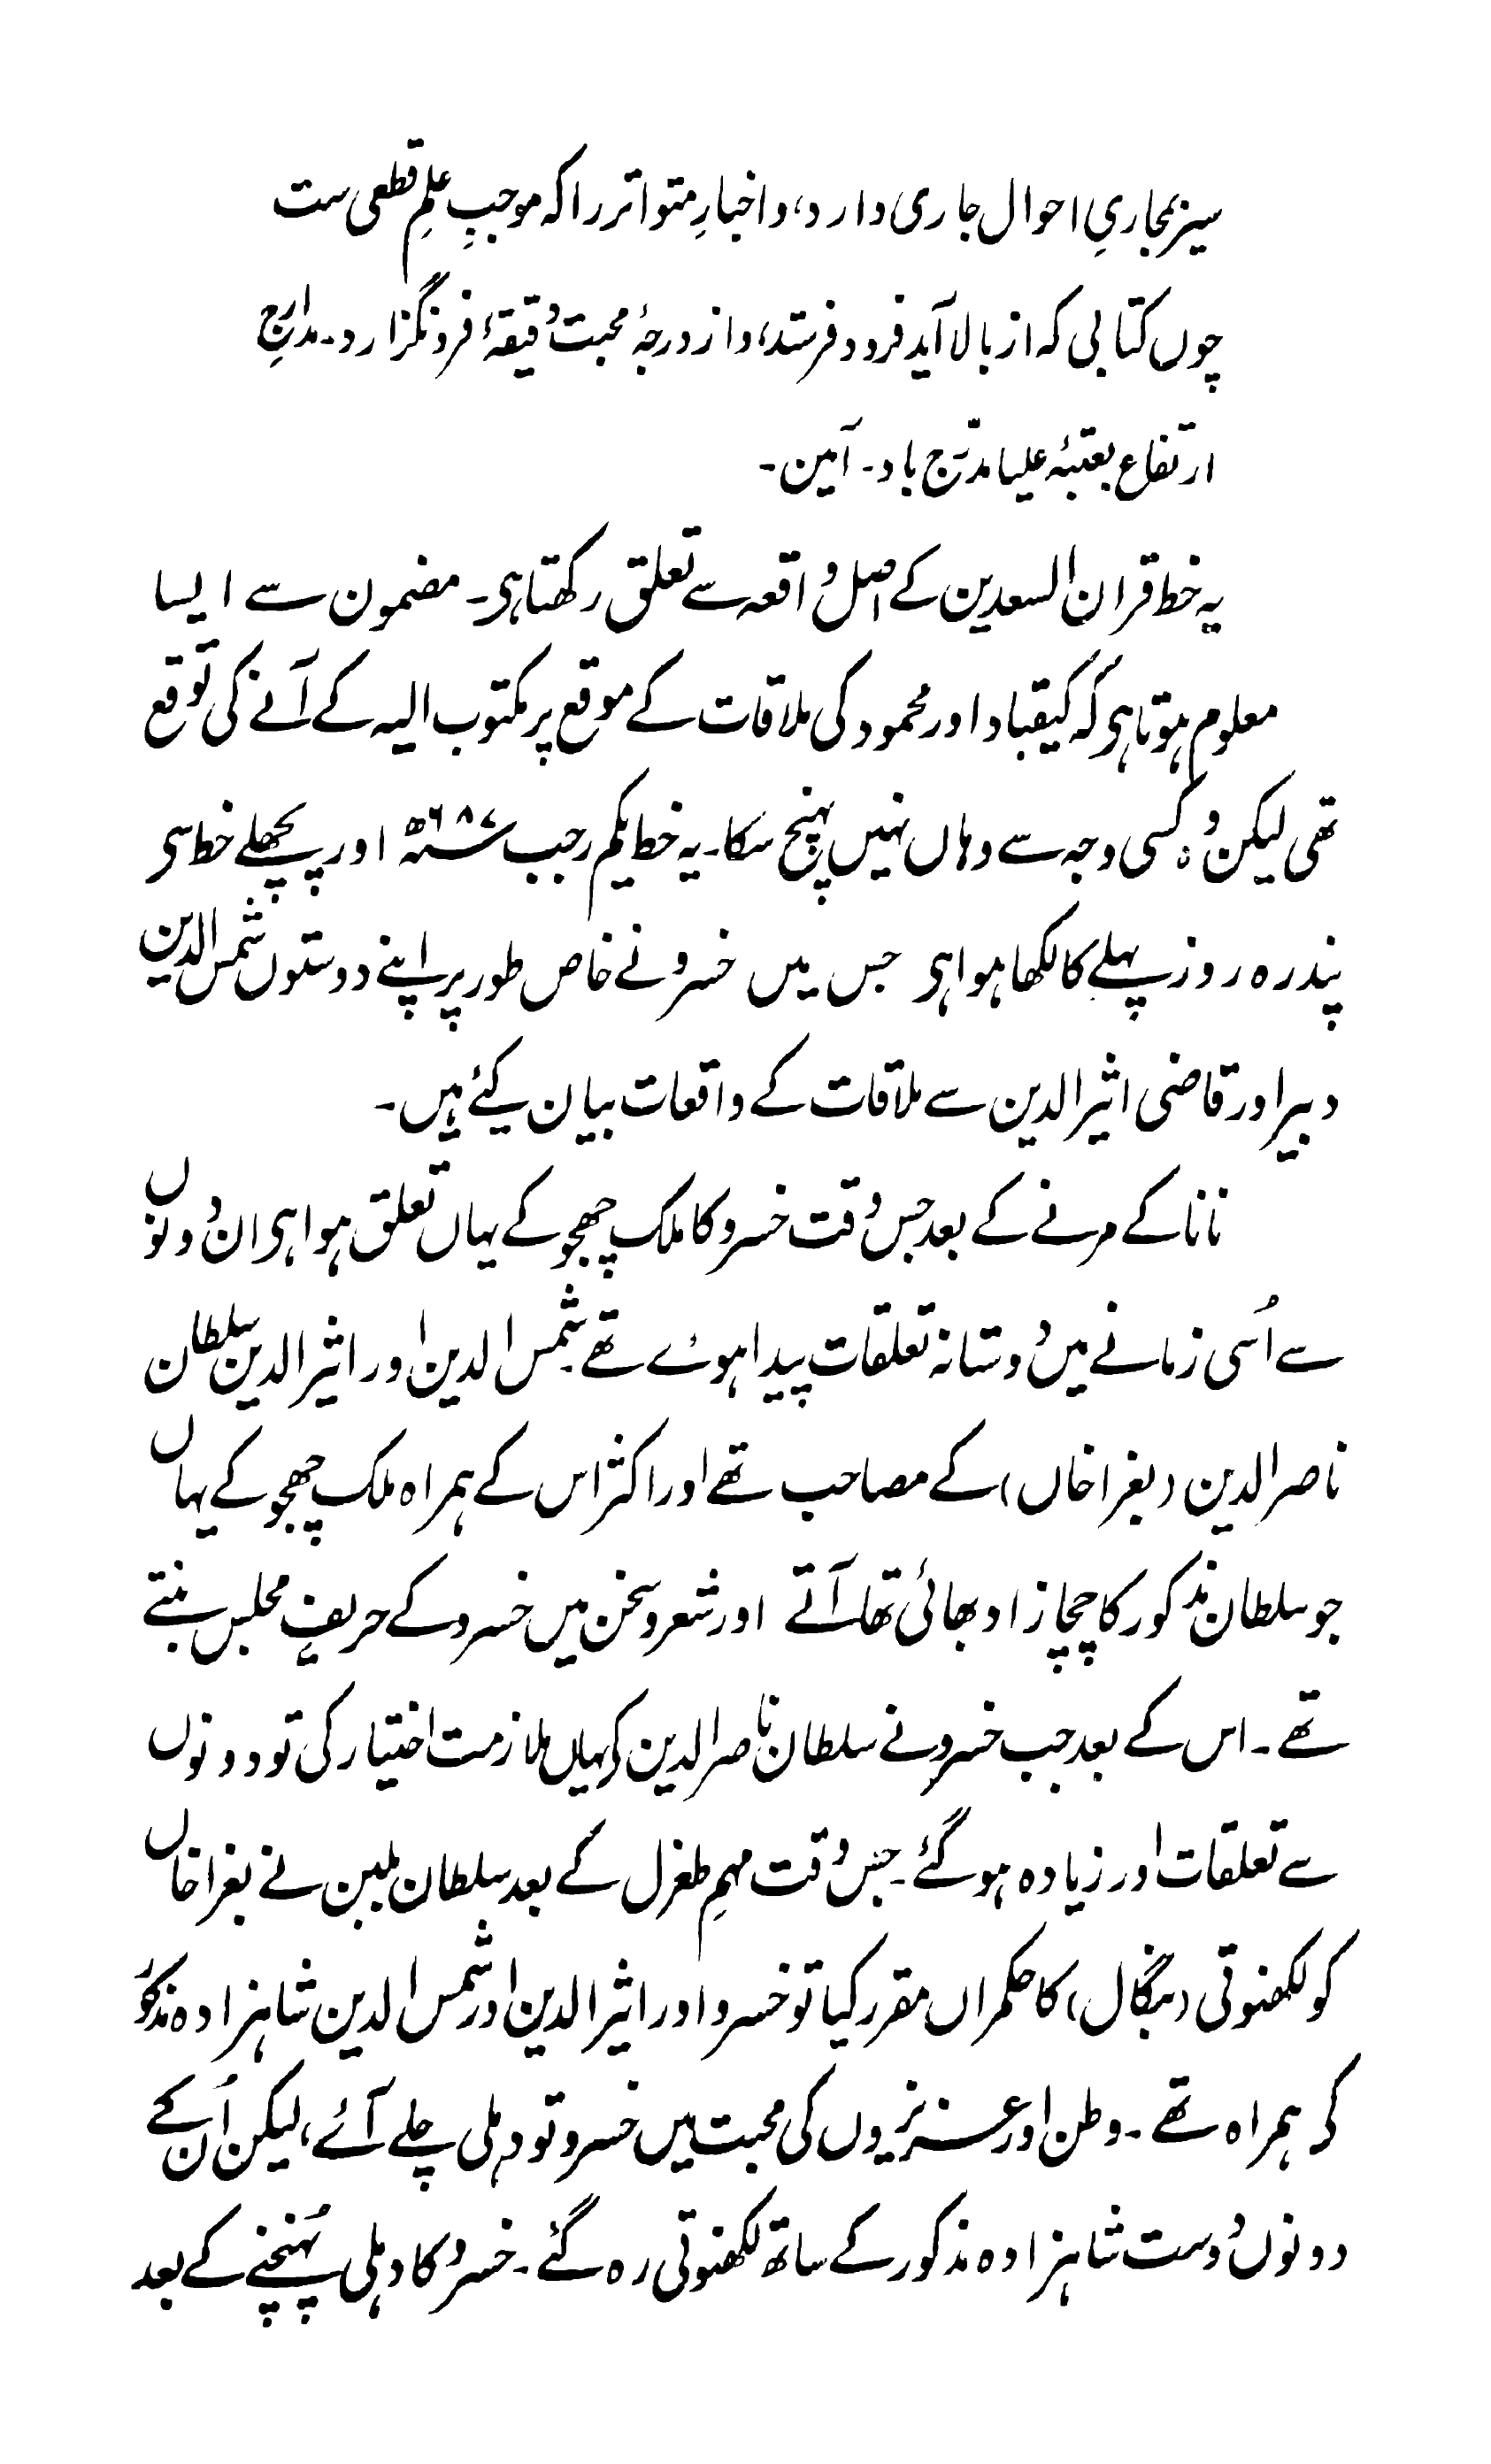 سیز بمجاریِ احوال جاری دارد، و اخبارِ متواتر را کہ موجبِ علمِ قطعی ست
چوں کتابی کہ از بالا آید فرود فرستد، و از درجۂ محبت دقیقۂ فرو نگزارد۔ مدارجِ
ارتفاع بعتبۂ علیا مدرّج باد۔ آمین۔
یہ خط قران السعدین کے اصل واقعہ سے تعلق رکھتا ہی۔ مضمون سے ایسا
معلوم ہوتا ہی کہ کیقباد اور محمود کی ملاقات کے موقع پر مکتوب الیہ کے آنے کی توقع
تھی لیکن وہ کسی وجہ سے وہاں نہیں پہنچ سکا۔ یہ خط یکم رجب ۶۸۷ھ اور پچھلے خط سی
پندرہ روز پہلے کا لکھا ہوا ہی جس میں خسرو نے خاص طور پر اپنے دوستوں شمس الدین
دبیر اور قاضی اثیر الدین سے ملاقات کے واقعات بیان کیے ہیں۔
نانا کے مرنے کے بعد جس وقت خسرو کا ملک چھجو کے یہاں تعلق ہوا ہی ان دونوں
سے اُسی زمانے میں دوستانہ تعلقات پیدا ہوے تھے۔ شمس الدین اور اثیر الدین سلطان
ناصر الدین (بغرا خاں) کے مصاحب تھے اور اکثر اس کے ہمراہ ملک چھجو کے یہاں
جو سلطان مذکور کا چچا زاد بھائی تھا۔ آتے اور شعر و سخن میں خسرو کے حریفِ مجلس بنتے
تھے۔ اس کے بعد جب خسرو نے سلطان ناصر الدین کی یہاں ملازمت اختیار کی تو دونوں
سے تعلقات اور زیادہ ہو گئے۔ جس وقت مہمِ طغرل کے بعد سلطان بلبن نے بغرا خاں
کو لکھنوتی (بنگال) کا حکمراں مقرر کیا تو خسرو اور اثیر الدین اور شمس الدین شاہزادہ مذکور
کی ہمراہ تھے۔ وطن اور عزیزوں کی محبت میں خسرو تو دہلی چلے آئے، لیکن اُن کے
دونوں دوست شاہزادہ مذکور کے ساتھ لکھنوتی رہ گئے۔ خسرو کا دہلی پُہنچنے کے بعد